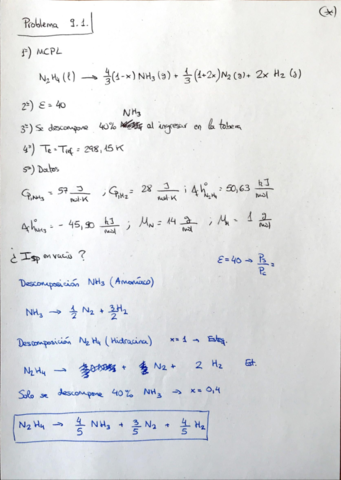 (*)
Problema 9.1.
1º) MCPL
N₂H₄ (l) → 4/3 (1-x) NH₃ (g) + 1/3 (1+2x) N₂ (g) + 2x H₂ (g)
2º) ε = 40
NH₃
3º) Se descompone 40% al ingresar en la tobera
4º) Te = Tref = 298,15 K
5º) Datos
CpNH₃ = 57 J/mol·K ; CpH₂ = 28 J/mol·K ; Δh°N₂H₄ = 50,63 kJ/mol
Δh°NH₃ = - 45,90 kJ/mol ; MN = 14 g/mol ; MH = 1 g/mol
¿ Isp en vacío ?
ε = 40 → Ps/Pc =
Descomposición NH₃ (Amoníaco)
NH₃ → 1/2 N₂ + 3/2 H₂
Descomposición N₂H₄ (Hidracina) x = 1 → Esteq.
N₂H₄ → + N₂ + 2 H₂ Est.
Solo se descompone 40% NH₃ → x = 0,4
N₂H₄ → 4/5 NH₃ + 3/5 N₂ + 4/5 H₂